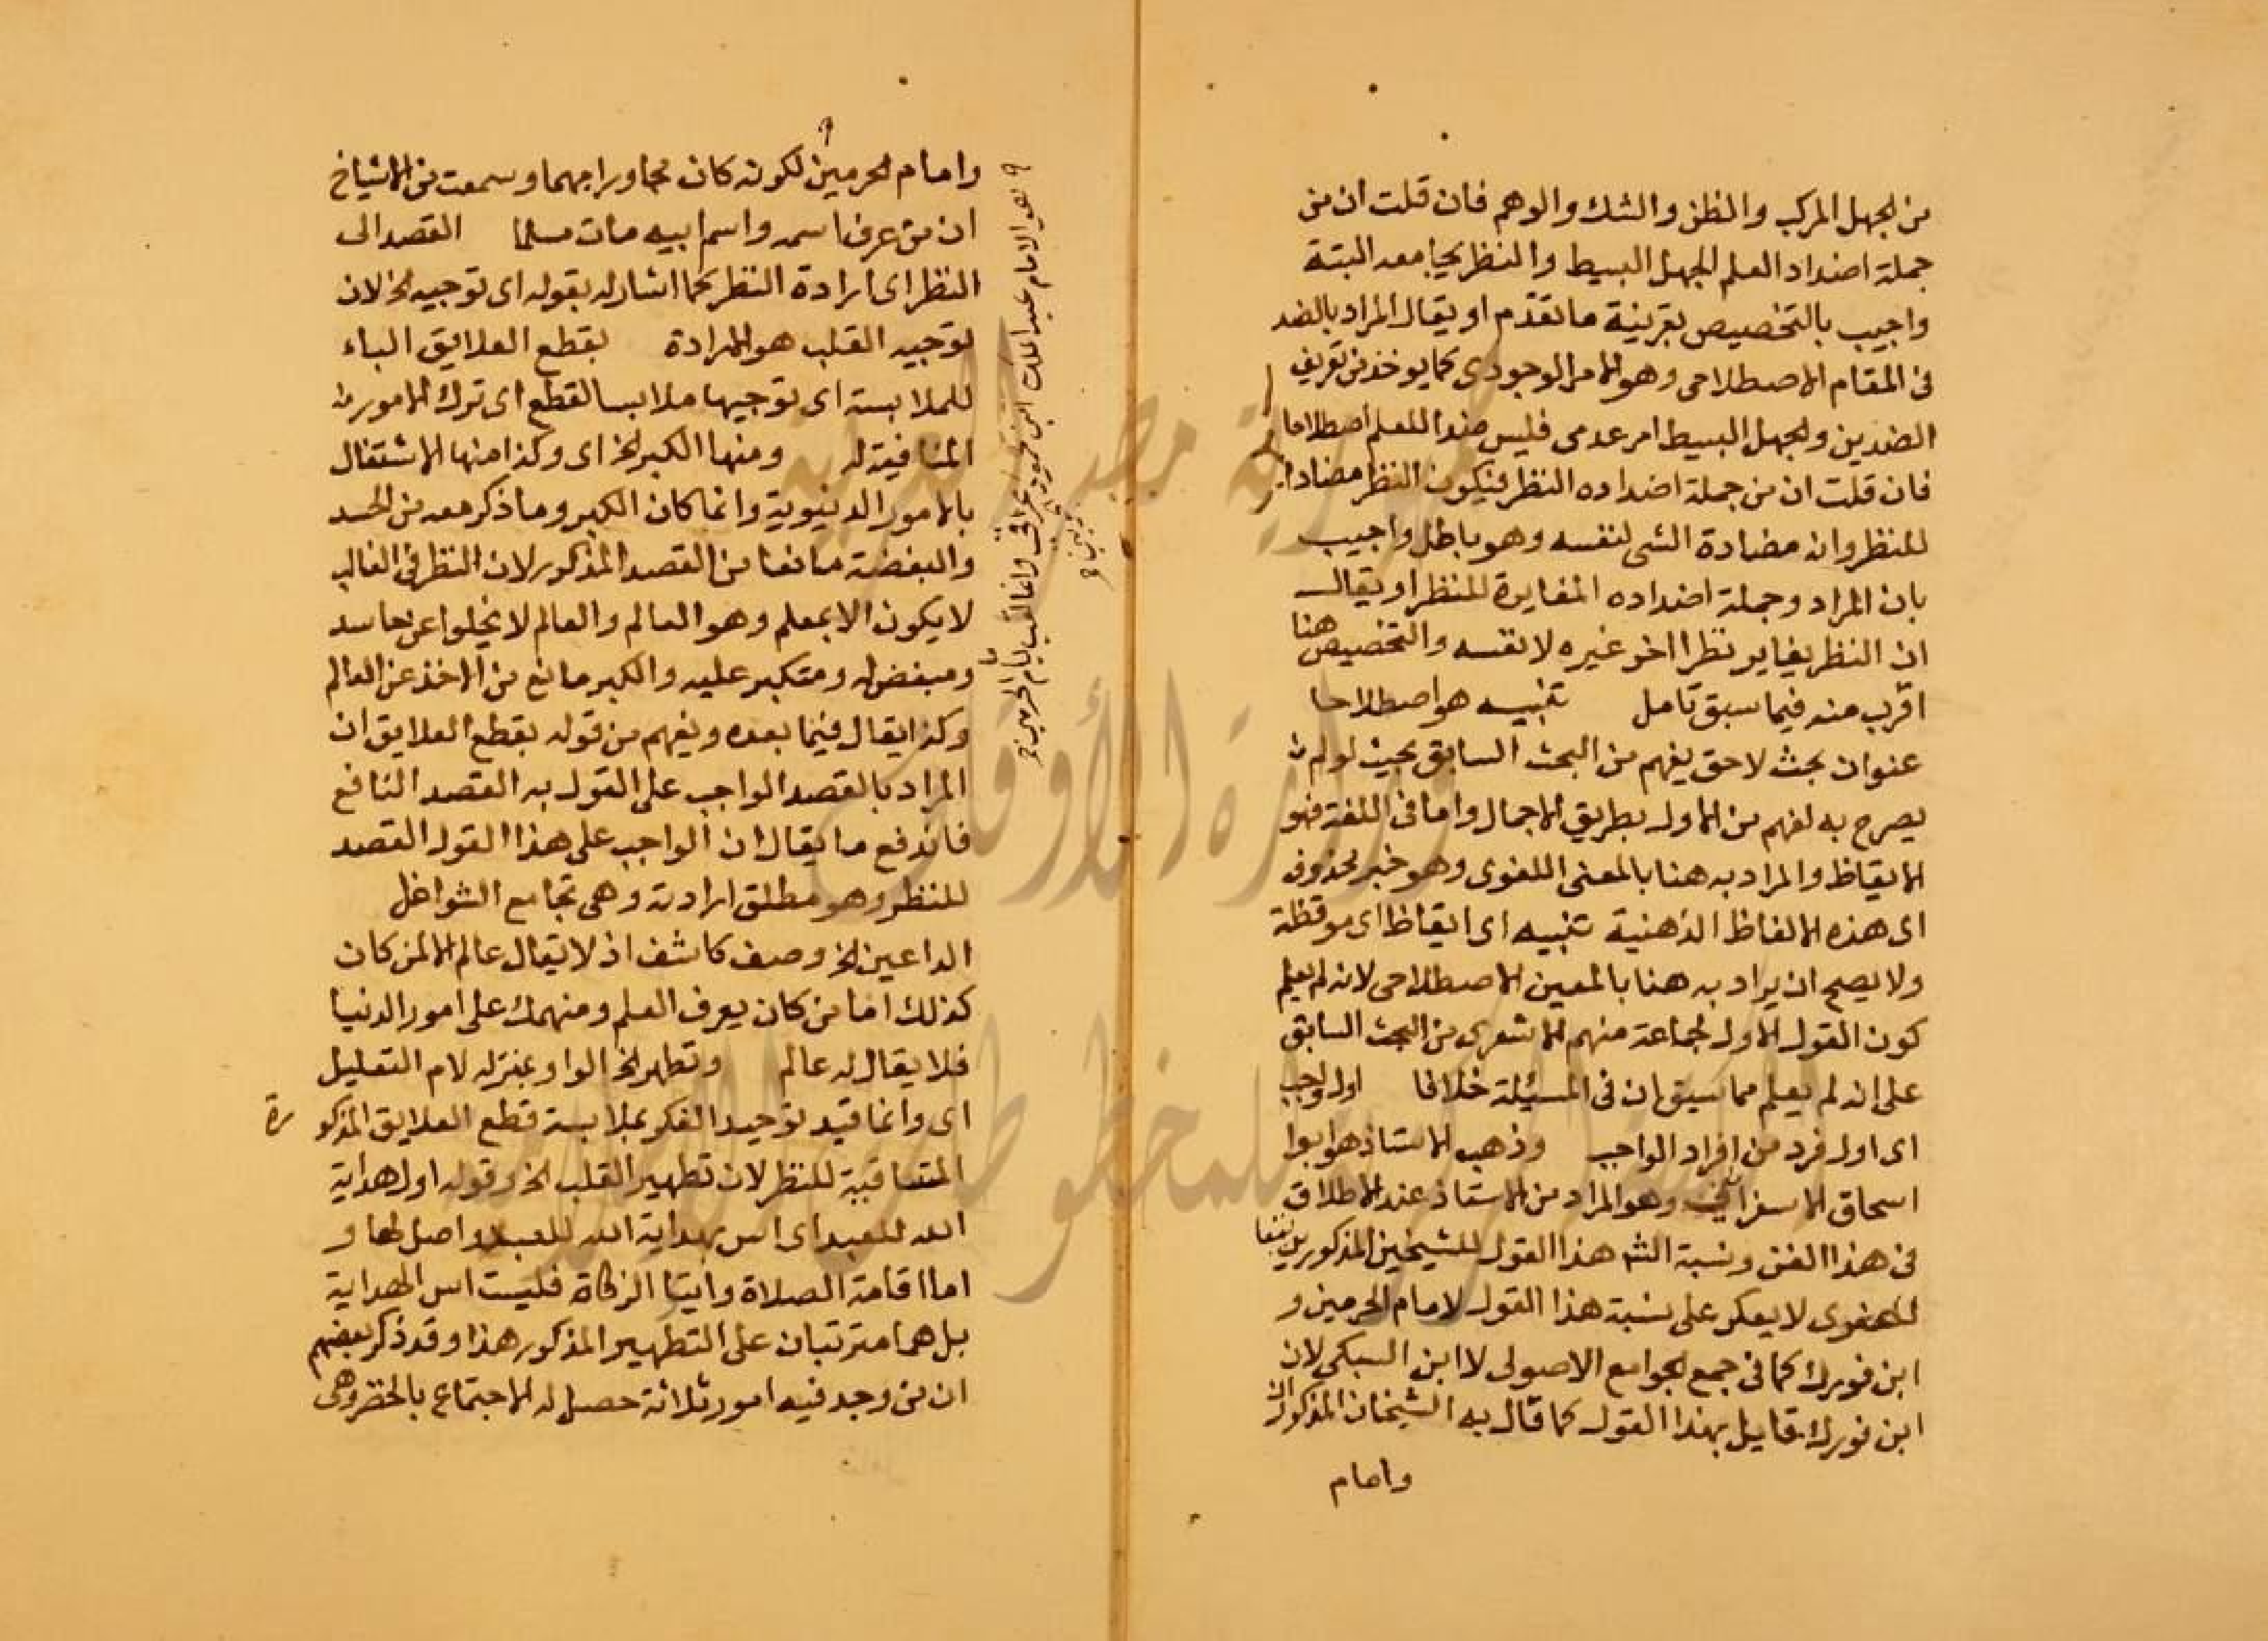 من الجهل المركب والظن والشك والوهم فان قلت ان من
جملة اضداد العلم الجهل البسيط والنظر يجامعه البتة
واجيب بالتخصيص بقرينة ما تقدم او يقال المراد بالضد
فى المقام الاصطلاحى وهو الامر الوجودى كما يوخذ من تعريف
الضدين والجهل البسيط امر عدمى فليس ضدا للعلم اصطلاحا
فان قلت ان من جملة اضداده النظر فيكون النظر مضادا
للنظر وانه مضادة الشى لنفسه وهو باطل واجيب
بان المراد وجملة اضداده المغايرة للنظر او يقال
ان النظر يغاير نظرا اخر غيره لا نفسه والتخصيص هنا
اقرب منه فيما سبق تامل تنبيه هو اصطلاحا
عنوان بحث لاحق يفهم من البحث السابق بحيث لو لم
يصرح به لفهم من الاول بطريق الاجمال واما فى اللغة فهو
الايقاظ والمراد به هنا بالمعنى اللغوى وهو خبر لمحذوف
اى هذه الالفاظ الذهنية تنبيه اى ايقاظ اى موقظة
ولا يصح ان يراد به هنا بالمعين الاصطلاحى لانه لم يعلم
كون القول الاول لجماعة منهم الاشعرى من البحث السابق
على انه لم يعلم مما سبق ان فى المسئلة خلافا اول واجب
اى اول فرد من افراد الواجب وذهب الاستاذ هو ابوا
اسحاق الاسفرائنى وهو المراد من الاستاذ عند الاطلاق
فى هذا الفن ونسبة الش هذا القول للشيخين المذكورين تبعا
للهفوى لا يعكر على نسبة هذا القول لامام الحرمين و
ابن فورك كما فى جمع الجوامع الاصولى لا ابن السبكى لان
ابن فورك قايل بهذا القول كما قال به الشيخان المذكوران
وامام
وامام الحرمين لكونه كان مجاورا بهما وسمعت من الاشياخ
ان من عرف اسمه واسم ابيه مات مسلما القصد الى
النظر اى ارادة النظر كما اشار له بقوله اى توجيه الخ لان
توجيه القلب هو الارادة بقطع العلايق الباء
للملابسة اى توجيها ملابسا لقطع اى ترك الامور
المنافية له ومنها الكبر الخ اى وكذا منها الاشتغال
بالامور الدنيوية وانما كان الكبر وما ذكر معه من الحسد
والبغضة مانعا من القصد المذكور لان النظر فى الغالب
لا يكون الا بمعلم وهو العالم والعالم لا يخلوا عن حاسد
ومبغض له ومتكبر عليه والكبر مانع من الاخذ عن العالم
وكذا يقال فيما بعده ويفهم من قوله بقطع العلايق ان
المراد بالقصد الواجب على القول به القصد النافع
فاندفع ما يقال ان الواجب على هذا القول القصد
للنظر وهو مطلق ارادته وهى تجامع الشواغل
الداعين الخ وصف كاشف اذ لا يقال عالم الا لمن كان
كذلك اما من كان يعرف العلم ومنهمك على امور الدنيا
فلا يقال له عالم وتطهر الخ الواو بمنزلة لام التعليل
اى وانما قيد توجيه الفكر بملابسة قطع العلايق المذكورة
المتعاقبة للنظر لان تطهير القلب الخ وقوله اول هداية
الله للعبد اى اس هداية الله للعبد واصل لها و
اما اقامة الصلاة وايتا الزكاة فليست اس الهداية
بل هما مترتبان على التطهير المذكور هذا وقد ذكر بعضهم
ان من وجد فيه امور ثلاثة حصل له الاجتماع بالخضر وهى
هو الامام عبد الملك ابن وانما لقب بامام الحرمين
جمهورية مصر العربية
وزارة الأوقاف